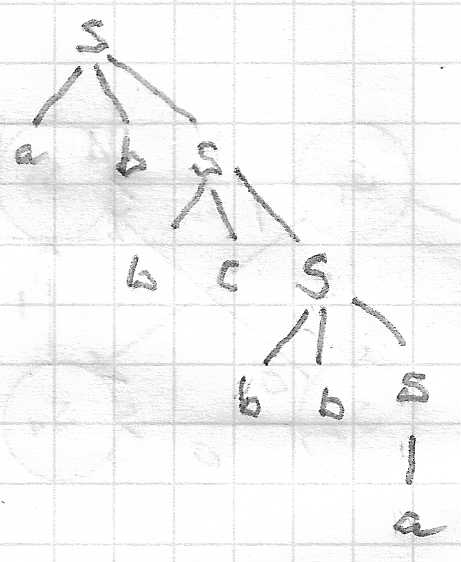 S
a b S
b c S
b b S
a